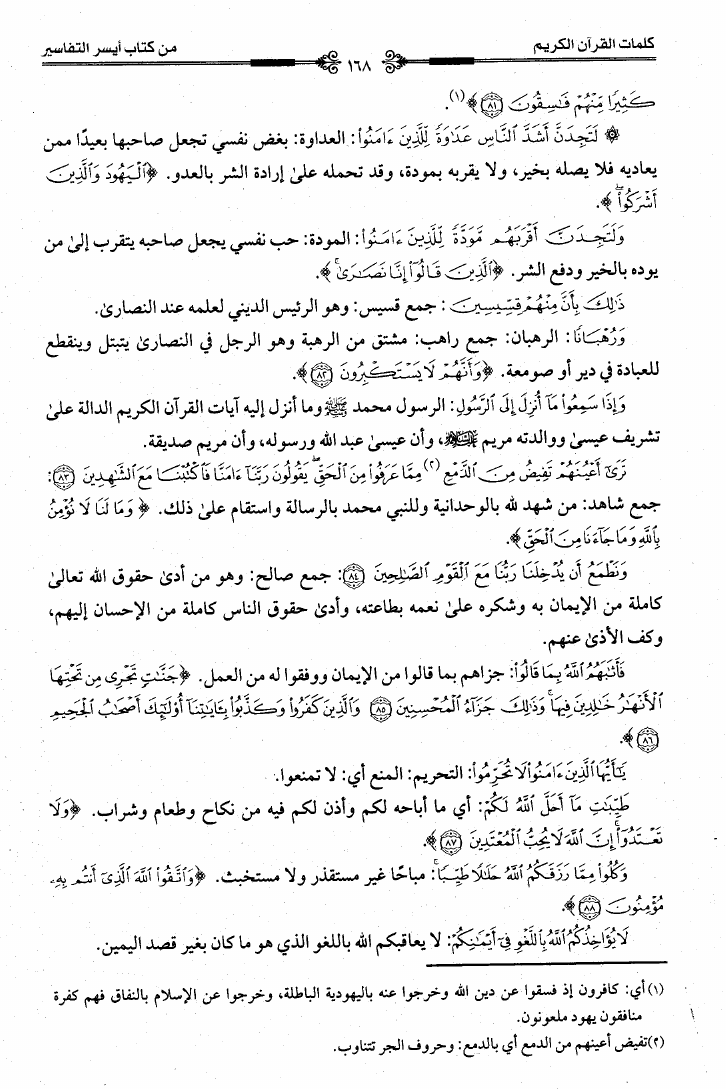 كلمات القرآن الكريم ١٦٨ من كتاب أيسر التفاسير
كَثِيرًا مِّنْهُمْ فَاسِقُونَ ﴿٨١﴾﴾(١).
۞ لَتَجِدَنَّ أَشَدَّ النَّاسِ عَدَاوَةً لِّلَّذِينَ ءَامَنُوا: العداوة: بغض نفسي تجعل صاحبها بعيدًا ممن
يعاديه فلا يصله بخير، ولا يقربه بمودة، وقد تحمله على إرادة الشر بالعدو. ﴿الْيَهُودَ وَالَّذِينَ
أَشْرَكُوا ۖ﴾.
وَلَتَجِدَنَّ أَقْرَبَهُم مَّوَدَّةً لِّلَّذِينَ ءَامَنُوا: المودة: حب نفسي يجعل صاحبه يتقرب إلى من
يوده بالخير ودفع الشر. ﴿الَّذِينَ قَالُوا إِنَّا نَصَارَىٰ ۚ﴾.
ذَٰلِكَ بِأَنَّ مِنْهُمْ قِسِّيسِينَ: جمع قسيس: وهو الرئيس الديني لعلمه عند النصارى.
وَرُهْبَانًا: الرهبان: جمع راهب: مشتق من الرهبة وهو الرجل في النصارى يتبتل وينقطع
للعبادة في دير أو صومعة. ﴿وَأَنَّهُمْ لَا يَسْتَكْبِرُونَ ﴿٨٢﴾﴾.
وَإِذَا سَمِعُوا مَا أُنزِلَ إِلَى الرَّسُولِ: الرسول محمد ﷺ وما أنزل إليه آيات القرآن الكريم الدالة على
تشريف عيسى ووالدته مريم، وأن عيسى عبد الله ورسوله، وأن مريم صديقة.
تَرَىٰ أَعْيُنَهُمْ تَفِيضُ مِنَ الدَّمْعِ(٢) مِمَّا عَرَفُوا مِنَ الْحَقِّ ۖ يَقُولُونَ رَبَّنَا ءَامَنَّا فَاكْتُبْنَا مَعَ الشَّاهِدِينَ ﴿٨٣﴾:
جمع شاهد: من شهد لله بالوحدانية وللنبي محمد بالرسالة واستقام على ذلك. ﴿وَمَا لَنَا لَا نُؤْمِنُ
بِاللَّهِ وَمَا جَاءَنَا مِنَ الْحَقِّ﴾.
وَنَطْمَعُ أَن يُدْخِلَنَا رَبُّنَا مَعَ الْقَوْمِ الصَّالِحِينَ ﴿٨٤﴾: جمع صالح: وهو من أدى حقوق الله تعالى
كاملة من الإيمان به وشكره على نعمه بطاعته، وأدى حقوق الناس كاملة من الإحسان إليهم،
وكف الأذى عنهم.
فَأَثَابَهُمُ اللَّهُ بِمَا قَالُوا: جزاهم بما قالوا من الإيمان ووفقوا له من العمل. ﴿جَنَّاتٍ تَجْرِي مِن تَحْتِهَا
الْأَنْهَارُ خَالِدِينَ فِيهَا ۚ وَذَٰلِكَ جَزَاءُ الْمُحْسِنِينَ ﴿٨٥﴾ وَالَّذِينَ كَفَرُوا وَكَذَّبُوا بِآيَاتِنَا أُولَٰئِكَ أَصْحَابُ الْجَحِيمِ
﴿٨٦﴾﴾.
يَا أَيُّهَا الَّذِينَ ءَامَنُوا لَا تُحَرِّمُوا: التحريم: المنع أي: لا تمنعوا.
طَيِّبَاتِ مَا أَحَلَّ اللَّهُ لَكُمْ: أي ما أباحه لكم وأذن لكم فيه من نكاح وطعام وشراب. ﴿وَلَا
تَعْتَدُوا ۚ إِنَّ اللَّهَ لَا يُحِبُّ الْمُعْتَدِينَ ﴿٨٧﴾﴾.
وَكُلُوا مِمَّا رَزَقَكُمُ اللَّهُ حَلَالًا طَيِّبًا ۚ: مباحًا غير مستقذر ولا مستخبث. ﴿وَاتَّقُوا اللَّهَ الَّذِي أَنتُم بِهِ
مُؤْمِنُونَ ﴿٨٨﴾﴾.
لَا يُؤَاخِذُكُمُ اللَّهُ بِاللَّغْوِ فِي أَيْمَانِكُمْ: لا يعاقبكم الله باللغو الذي هو ما كان بغير قصد اليمين.
(١) أي: كافرون إذ فسقوا عن دين الله وخرجوا عنه باليهودية الباطلة، وخرجوا عن الإسلام بالنفاق فهم كفرة
منافقون يهود ملعونون.
(٢) تفيض أعينهم من الدمع أي بالدمع: وحروف الجر تتناوب.